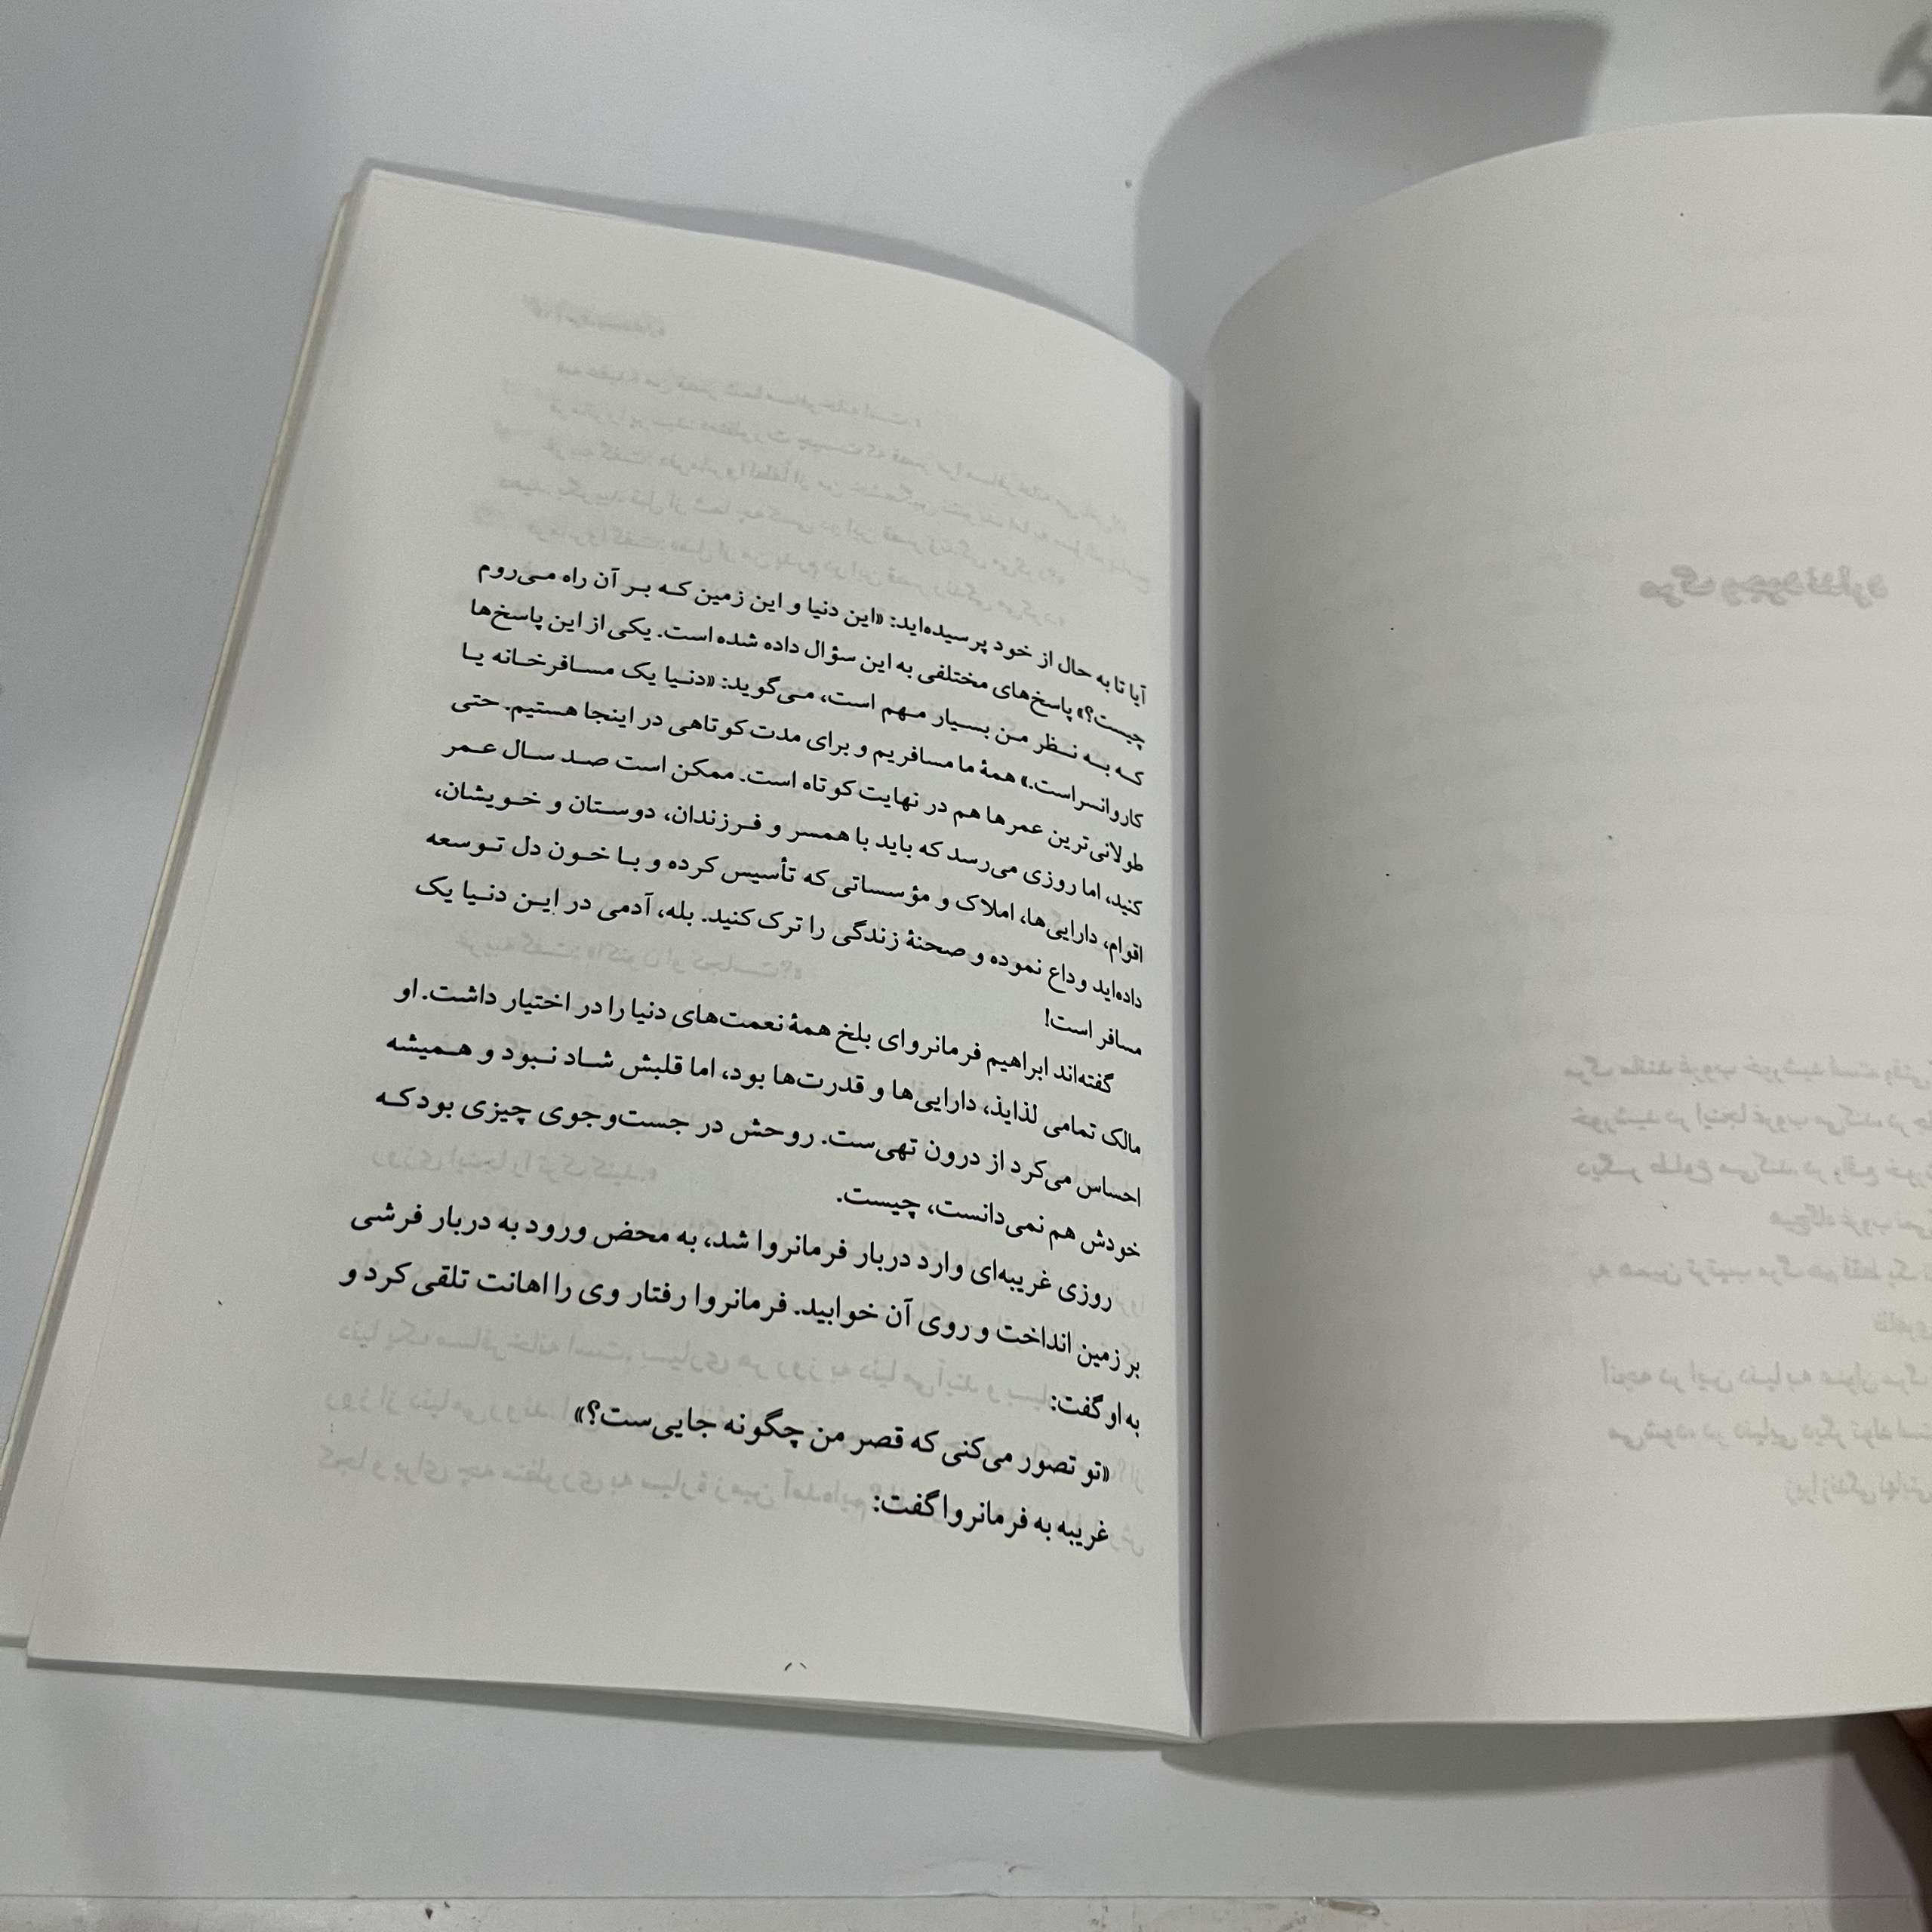 آیا تا به حال از خود پرسیده‌اید: «این دنیا و این زمین که بر آن راه می‌روم
چیست؟» پاسخ‌های مختلفی به این سؤال داده شده است. یکی از این پاسخ‌ها
که به نظر من بسیار مهم است، می‌گوید: «دنیا یک مسافرخانه یا
کاروانسراست.» همهٔ ما مسافریم و برای مدت کوتاهی در اینجا هستیم. حتی
طولانی‌ترین عمرها هم در نهایت کوتاه است. ممکن است صد سال عمر
کنید، اما روزی می‌رسد که باید با همسر و فرزندان، دوستان و خویشان،
اقوام، دارایی‌ها، املاک و مؤسساتی که تأسیس کرده و با خون دل توسعه
داده‌اید وداع نموده و صحنهٔ زندگی را ترک کنید. بله، آدمی در این دنیا یک
مسافر است!
گفته‌اند ابراهیم فرمانروای بلخ همهٔ نعمت‌های دنیا را در اختیار داشت. او
مالک تمامی لذایذ، دارایی‌ها و قدرت‌ها بود، اما قلبش شاد نبود و همیشه
احساس می‌کرد از درون تهی‌ست. روحش در جست‌وجوی چیزی بود که
خودش هم نمی‌دانست، چیست.
روزی غریبه‌ای وارد دربار فرمانروا شد، به محض ورود به دربار فرشی
بر زمین انداخت و روی آن خوابید. فرمانروا رفتار وی را اهانت تلقی کرد و
به او گفت:
«تو تصور می‌کنی که قصر من چگونه جایی‌ست؟»
غریبه به فرمانروا گفت: